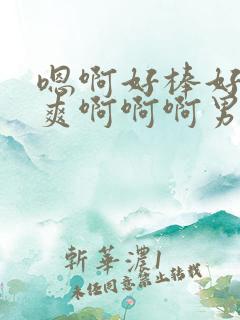 嗯啊好棒好
爽啊啊啊男
斩华浓1
未经同意禁止转载